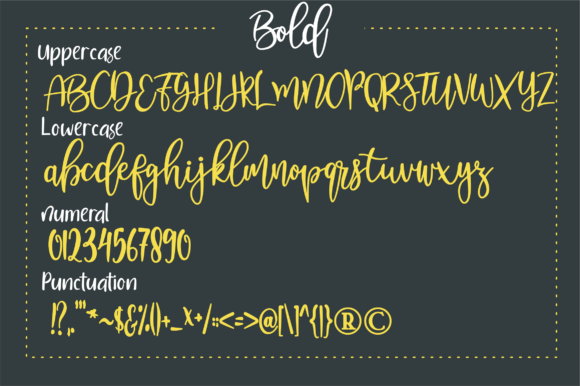 Bold
Uppercase
ABCDEFGHIJKLMNOPQRSTUVWXYZ
Lowercase
abcdefghijklmnopqrstuvwxyz
Numeral
01234567890
Punctuation
!?,.'"*~$&%()+_×+/:;<=>@[\]^{|}®©